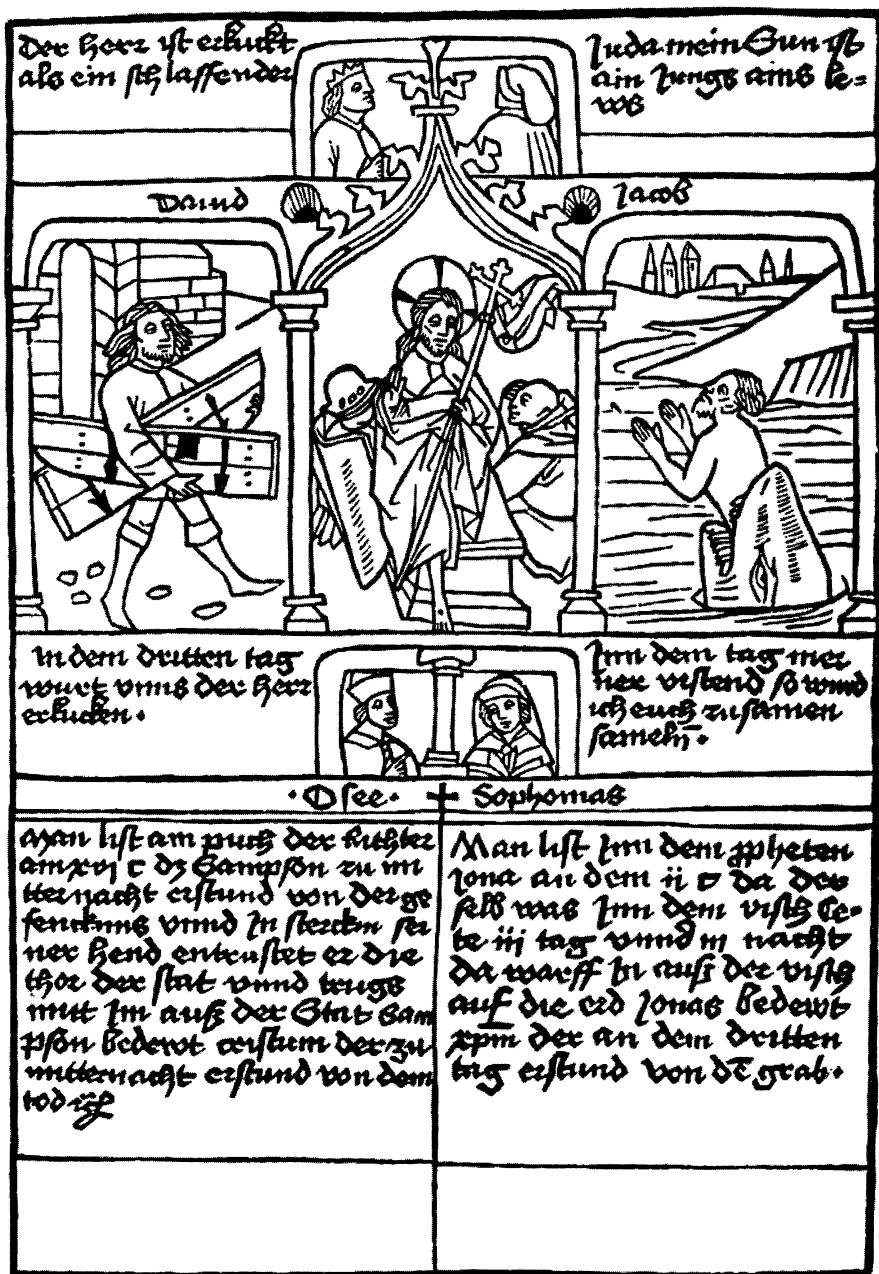 Der herr ist erkuckt
als ein schlaffender
Juda mein Sun ist
ain Jungs ains le=
ws
Dauid
Jacob
In dem dritten tag
wurt vnns der herr
erkucken.
Inn dem tag mei
ner vistend so wurd
ich euch zusamen
samelñ.
·Osee·
Sophonias
Man list am puch der Richter
am xvj c dz Sampson zu mi
tternacht erstund von der ge
fencknus vnnd In sterckin sei
ner hend entrustet er die
thor der stat vnnd trugs
mitt Im auß der Stat Sam
pson bedewt cristum der zu
mitternacht erstund von dem
tod
Man list Inn dem ppheten
Jona an dem ij c da der
selb was Inn dem visch Ce-
te iij tag vnnd iij nacht
da warff In auß der visch
auf die erd Jonas bedewt
xpm̄ der an dem dritten
tag erstund von dē grab.